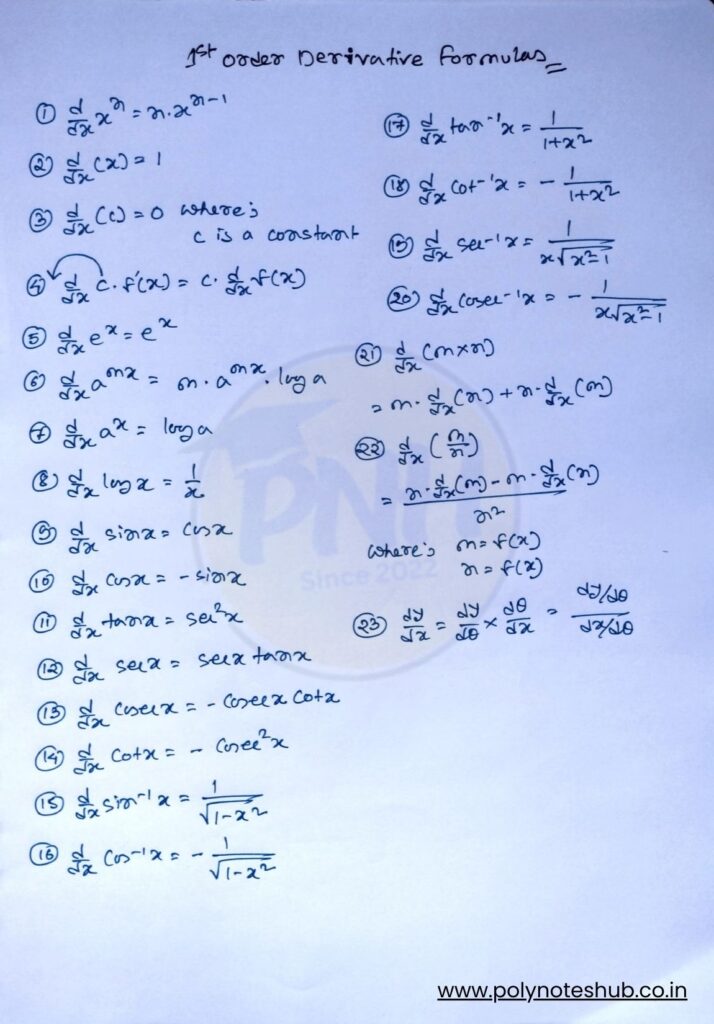 1st order Derivative formulas
① d/dx xⁿ = n·xⁿ⁻¹
② d/dx (x) = 1
③ d/dx (c) = 0 where;
c is a constant
④ d/dx c·f'(x) = c·d/dx f(x)
⑤ d/dx eˣ = eˣ
⑥ d/dx aᵐˣ = m·aᵐˣ·log a
⑦ d/dx aˣ = log a
⑧ d/dx log x = 1/x
⑨ d/dx sinx = cosx
⑩ d/dx cosx = -sinx
⑪ d/dx tanx = sec²x
⑫ d/dx secx = secx tanx
⑬ d/dx cosecx = -cosecx cotx
⑭ d/dx cotx = -cosec²x
⑮ d/dx sin⁻¹x = 1/√(1-x²)
⑯ d/dx cos⁻¹x = -1/√(1-x²)
⑰ d/dx tan⁻¹x = 1/(1+x²)
⑱ d/dx cot⁻¹x = -1/(1+x²)
⑲ d/dx sec⁻¹x = 1/(x√(x²-1))
⑳ d/dx cosec⁻¹x = -1/(x√(x²-1))
㉑ d/dx (m×n)
= m·d/dx(n) + n·d/dx(m)
㉒ d/dx (m/n)
= (n·d/dx(m) - m·d/dx(n))/n²
where; m = f(x)
n = f(x)
㉓ dy/dx = dy/dθ × dθ/dx = (dy/dθ)/(dx/dθ)
PNH
Since 2022
www.polynoteshub.co.in